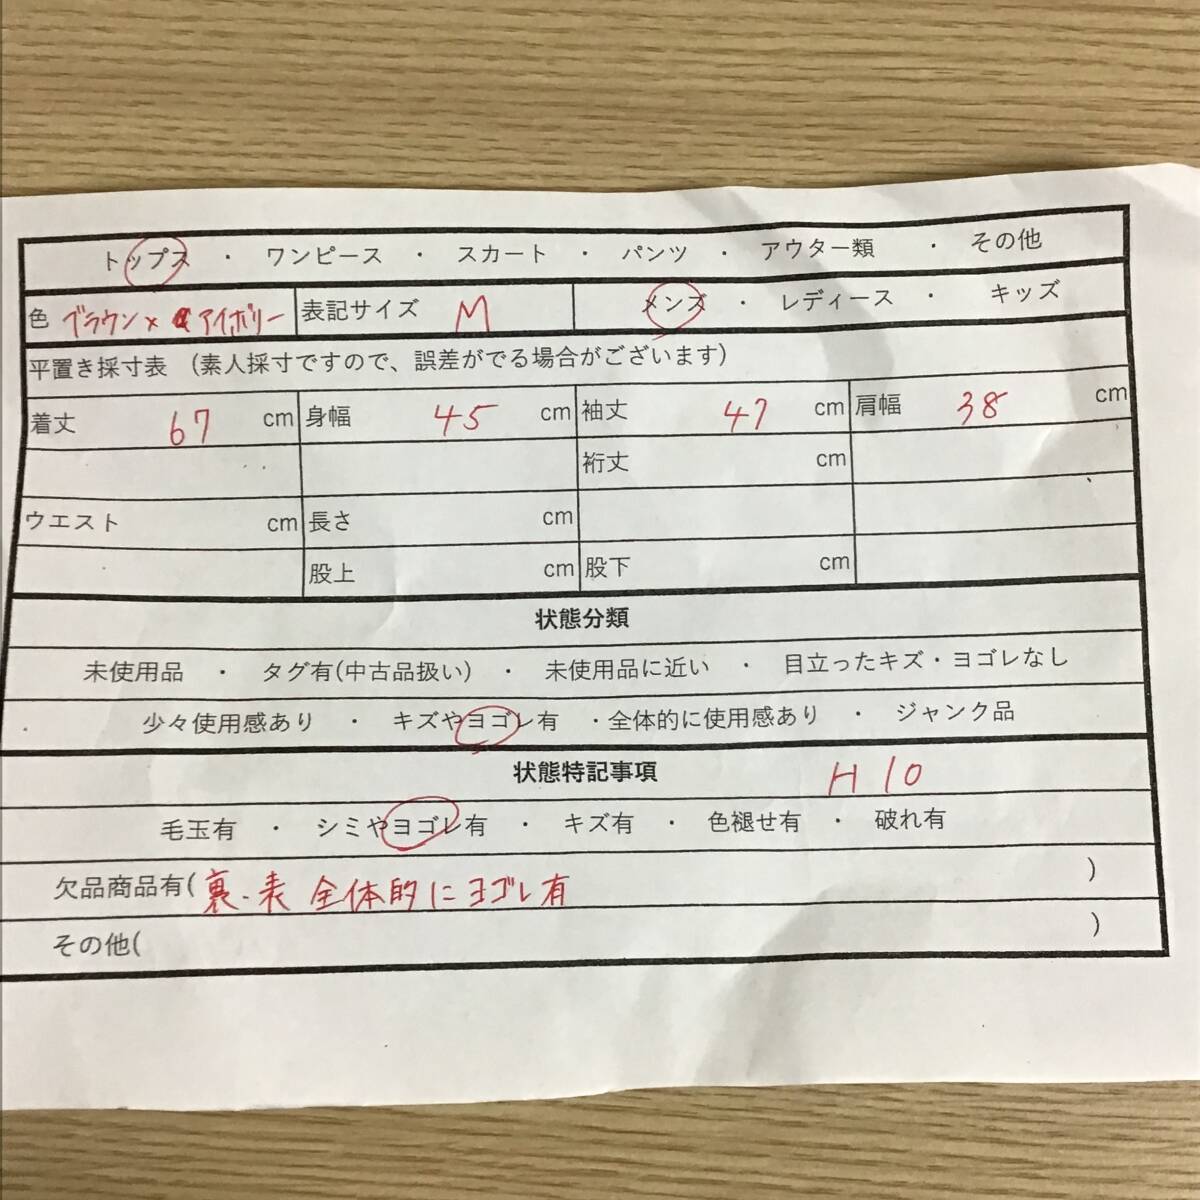 トップス ・ ワンピース ・ スカート ・ パンツ ・ アウター類 ・ その他
色 ブラウン×アイボリー 表記サイズ M メンズ ・ レディース ・ キッズ
平置き採寸表 （素人採寸ですので、誤差がでる場合がございます）
着丈 67 cm 身幅 45 cm 袖丈 47 cm 肩幅 38 cm
裄丈 cm
ウエスト cm 長さ cm
股上 cm 股下 cm
状態分類
未使用品 ・ タグ有(中古品扱い) ・ 未使用品に近い ・ 目立ったキズ・ヨゴレなし
少々使用感あり ・ キズやヨゴレ有 ・全体的に使用感あり ・ ジャンク品
状態特記事項 H10
毛玉有 ・ シミやヨゴレ有 ・ キズ有 ・ 色褪せ有 ・ 破れ有
欠品商品有( 裏・表 全体的にヨゴレ有 )
その他( )